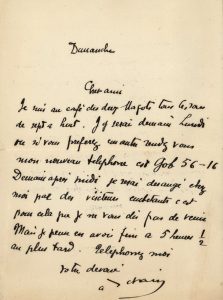 Dimanche
Cher ami
Je suis au café des deux Magots tous les soirs
de sept a huit. J'y serai demain lundi
ou si vous preferez un autre rendez vous
mon nouveau telephone est Gob 56-16
Demain apres midi je serai derangé chez
moi par des visiteurs embetants c'est
pour cela que je ne vous dis pas de venir
Mais je pense en avoir fini a 5 heures 1/2
au plus tard. Telephonez moi
votre devoué
a